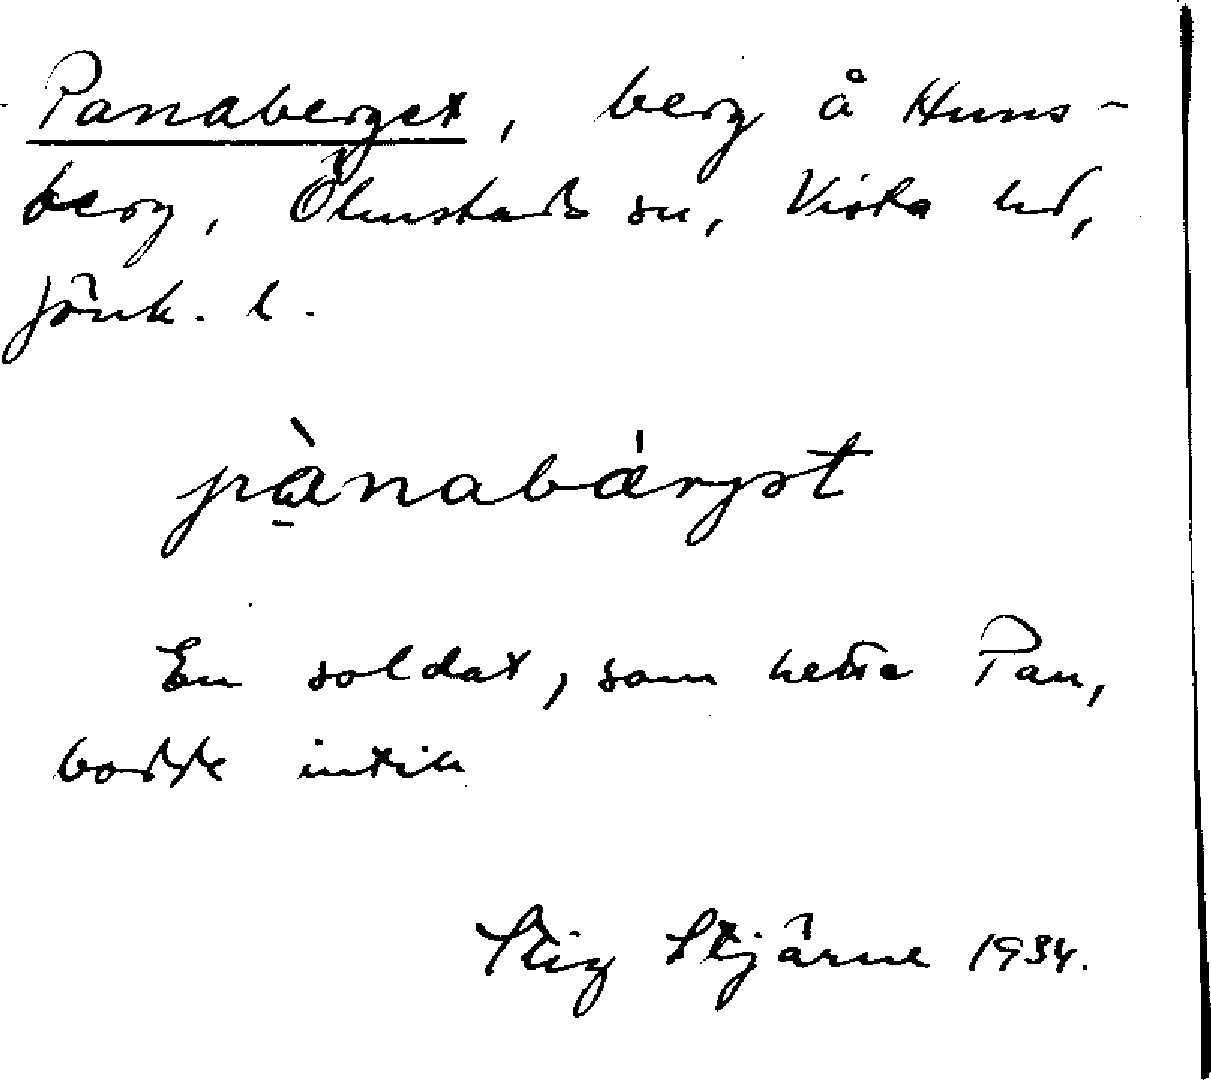 Panaberget, berg å Huns-
berg, Ölmstads sn, Vista hd,
Jönk. l.
pànabárgət
En soldat, som hette Pan,
bodde intill
Stig Stjärne 1934.